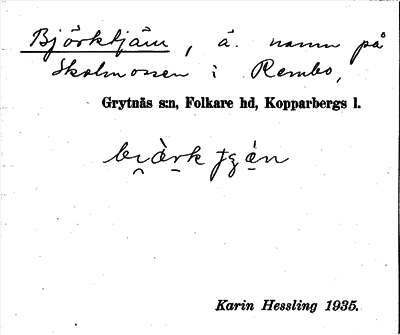 Björktjärn, ä. namn på
Skolmossen i Rembo,
Grytnäs s:n, Folkare hd, Kopparbergs l.
Karin Hessling 1935.